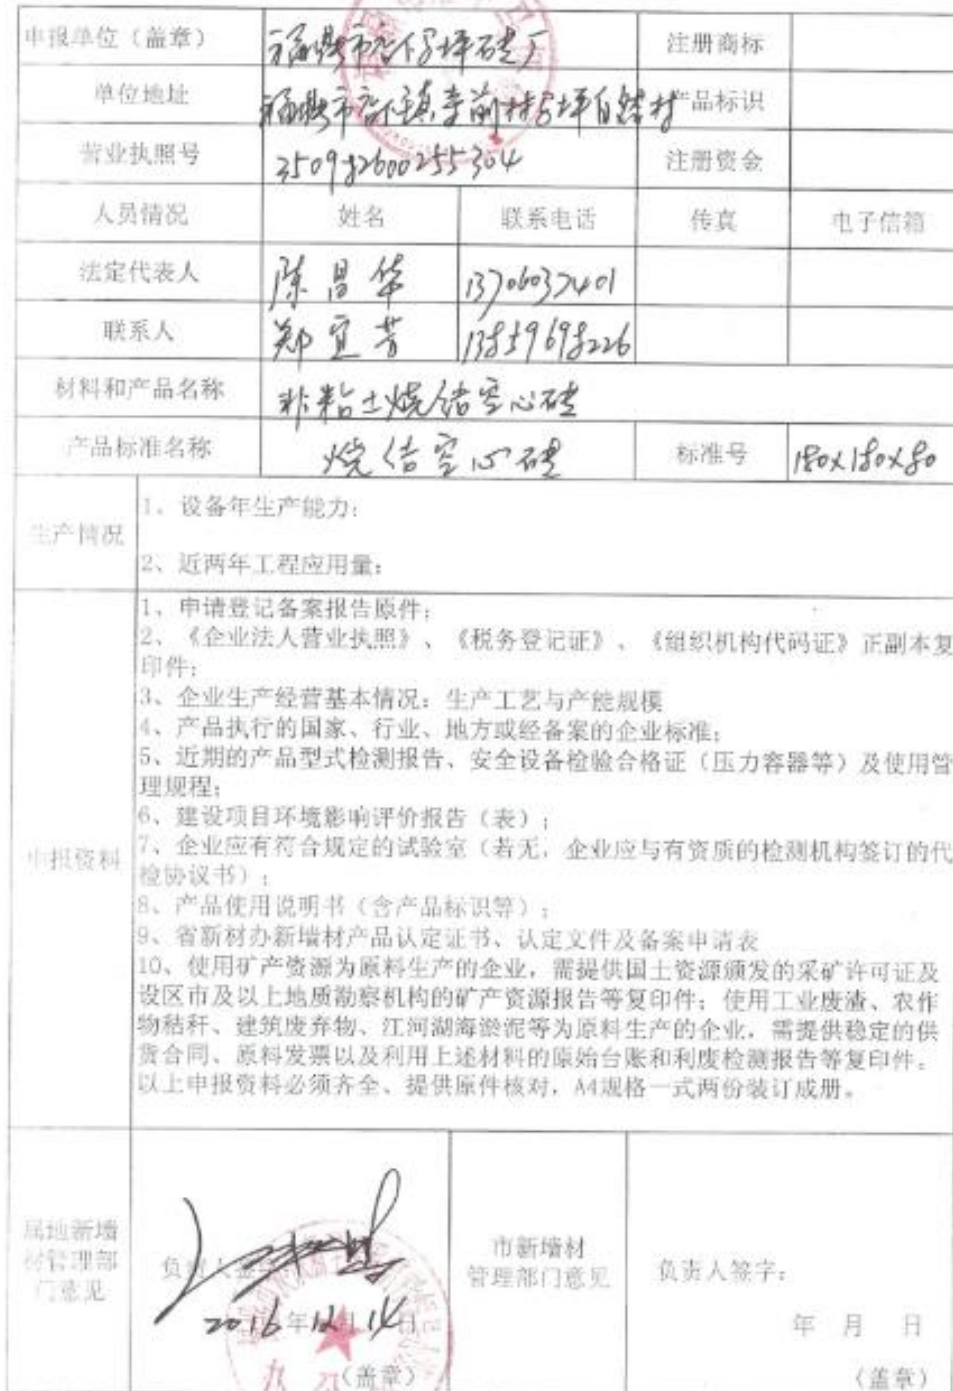 申报单位（盖章） 福鼎市 坪砖厂 注册商标
单位地址 福鼎市 镇 前村 坪自然村 产品标识
营业执照号 350982600255304 注册资金
人员情况 姓名 联系电话 传真 电子信箱
法定代表人 陈昌华 13706037401
联系人 郑宜芳 13859698226
材料和产品名称 非粘土烧结空心砖
产品标准名称 烧结空心砖 标准号 180x180x80
生产情况
1、设备年生产能力：
2、近两年工程应用量：
申报资料
1、申请登记备案报告原件；
2、《企业法人营业执照》、《税务登记证》、《组织机构代码证》正副本复
印件；
3、企业生产经营基本情况：生产工艺与产能规模
4、产品执行的国家、行业、地方或经备案的企业标准；
5、近期的产品型式检测报告、安全设备检验合格证（压力容器等）及使用管
理规程；
6、建设项目环境影响评价报告（表）；
7、企业应有符合规定的试验室（若无，企业应与有资质的检测机构签订的代
检协议书）；
8、产品使用说明书（含产品标识等）；
9、省新材办新墙材产品认定证书、认定文件及备案申请表
10、使用矿产资源为原料生产的企业，需提供国土资源颁发的采矿许可证及
设区市及以上地质勘察机构的矿产资源报告等复印件；使用工业废渣、农作
物秸秆、建筑废弃物、江河湖海淤泥等为原料生产的企业，需提供稳定的供
货合同、原料发票以及利用上述材料的原始台账和利废检测报告等复印件。
以上申报资料必须齐全、提供原件核对，A4规格一式两份装订成册。
属地新墙
材管理部
门意见
负责人签
2016年12月14日
（盖章）
市新墙材
管理部门意见
负责人签字：
年 月 日
（盖章）